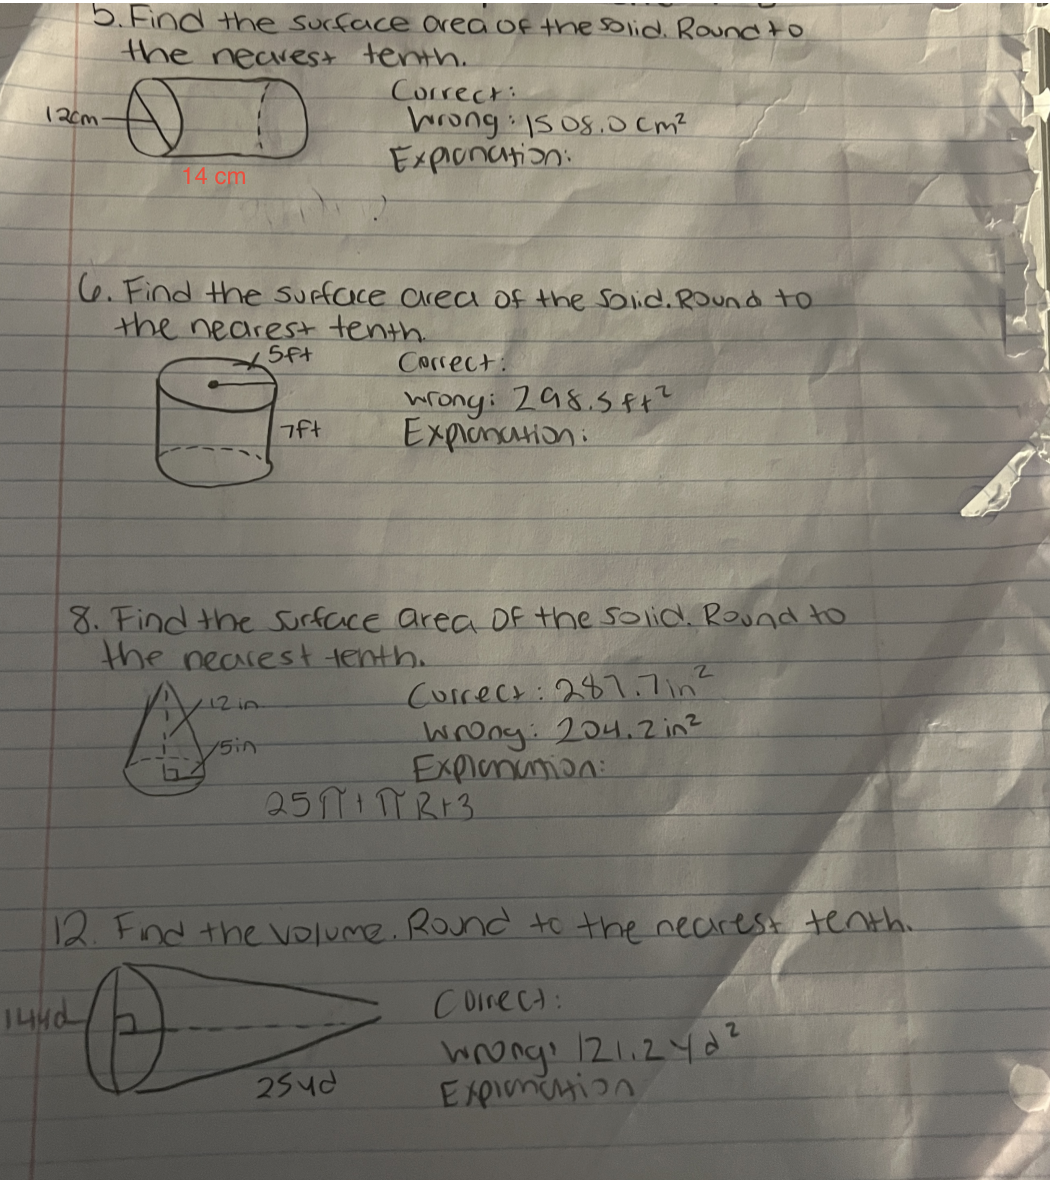 5. Find the surface area of the solid. Round to
the nearest tenth.
Correct:
12cm
Wrong: 1508.0 cm²
Explanation:
14 cm
6. Find the surface area of the solid. Round to
the nearest tenth.
5ft
Correct:
wrong: 298.5 ft²
7ft
Explanation:
8. Find the surface area of the solid. Round to
the nearest tenth.
Correct: 287.7in²
12in
Wrong: 204.2in²
5in
Explanation:
25π+πR+3
12. Find the volume. Round to the nearest tenth.
Correct:
14yd
Wrong: 121.2yd²
25yd
Explanation